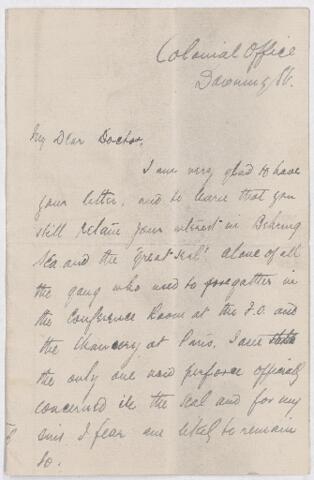 Colonial Office
Downing St.
My Dear Doctor,
I am very glad to have
your letter, and to learn that you
still retain your interest in Behring
Sea and the "great seal". Alone of all
the gang who used to gather in
the Conference Room at the F.O. and
the Chancery at Paris, I am
the only one now perforce officially
concerned in the seal and for my
sins I fear am likely to remain
so.